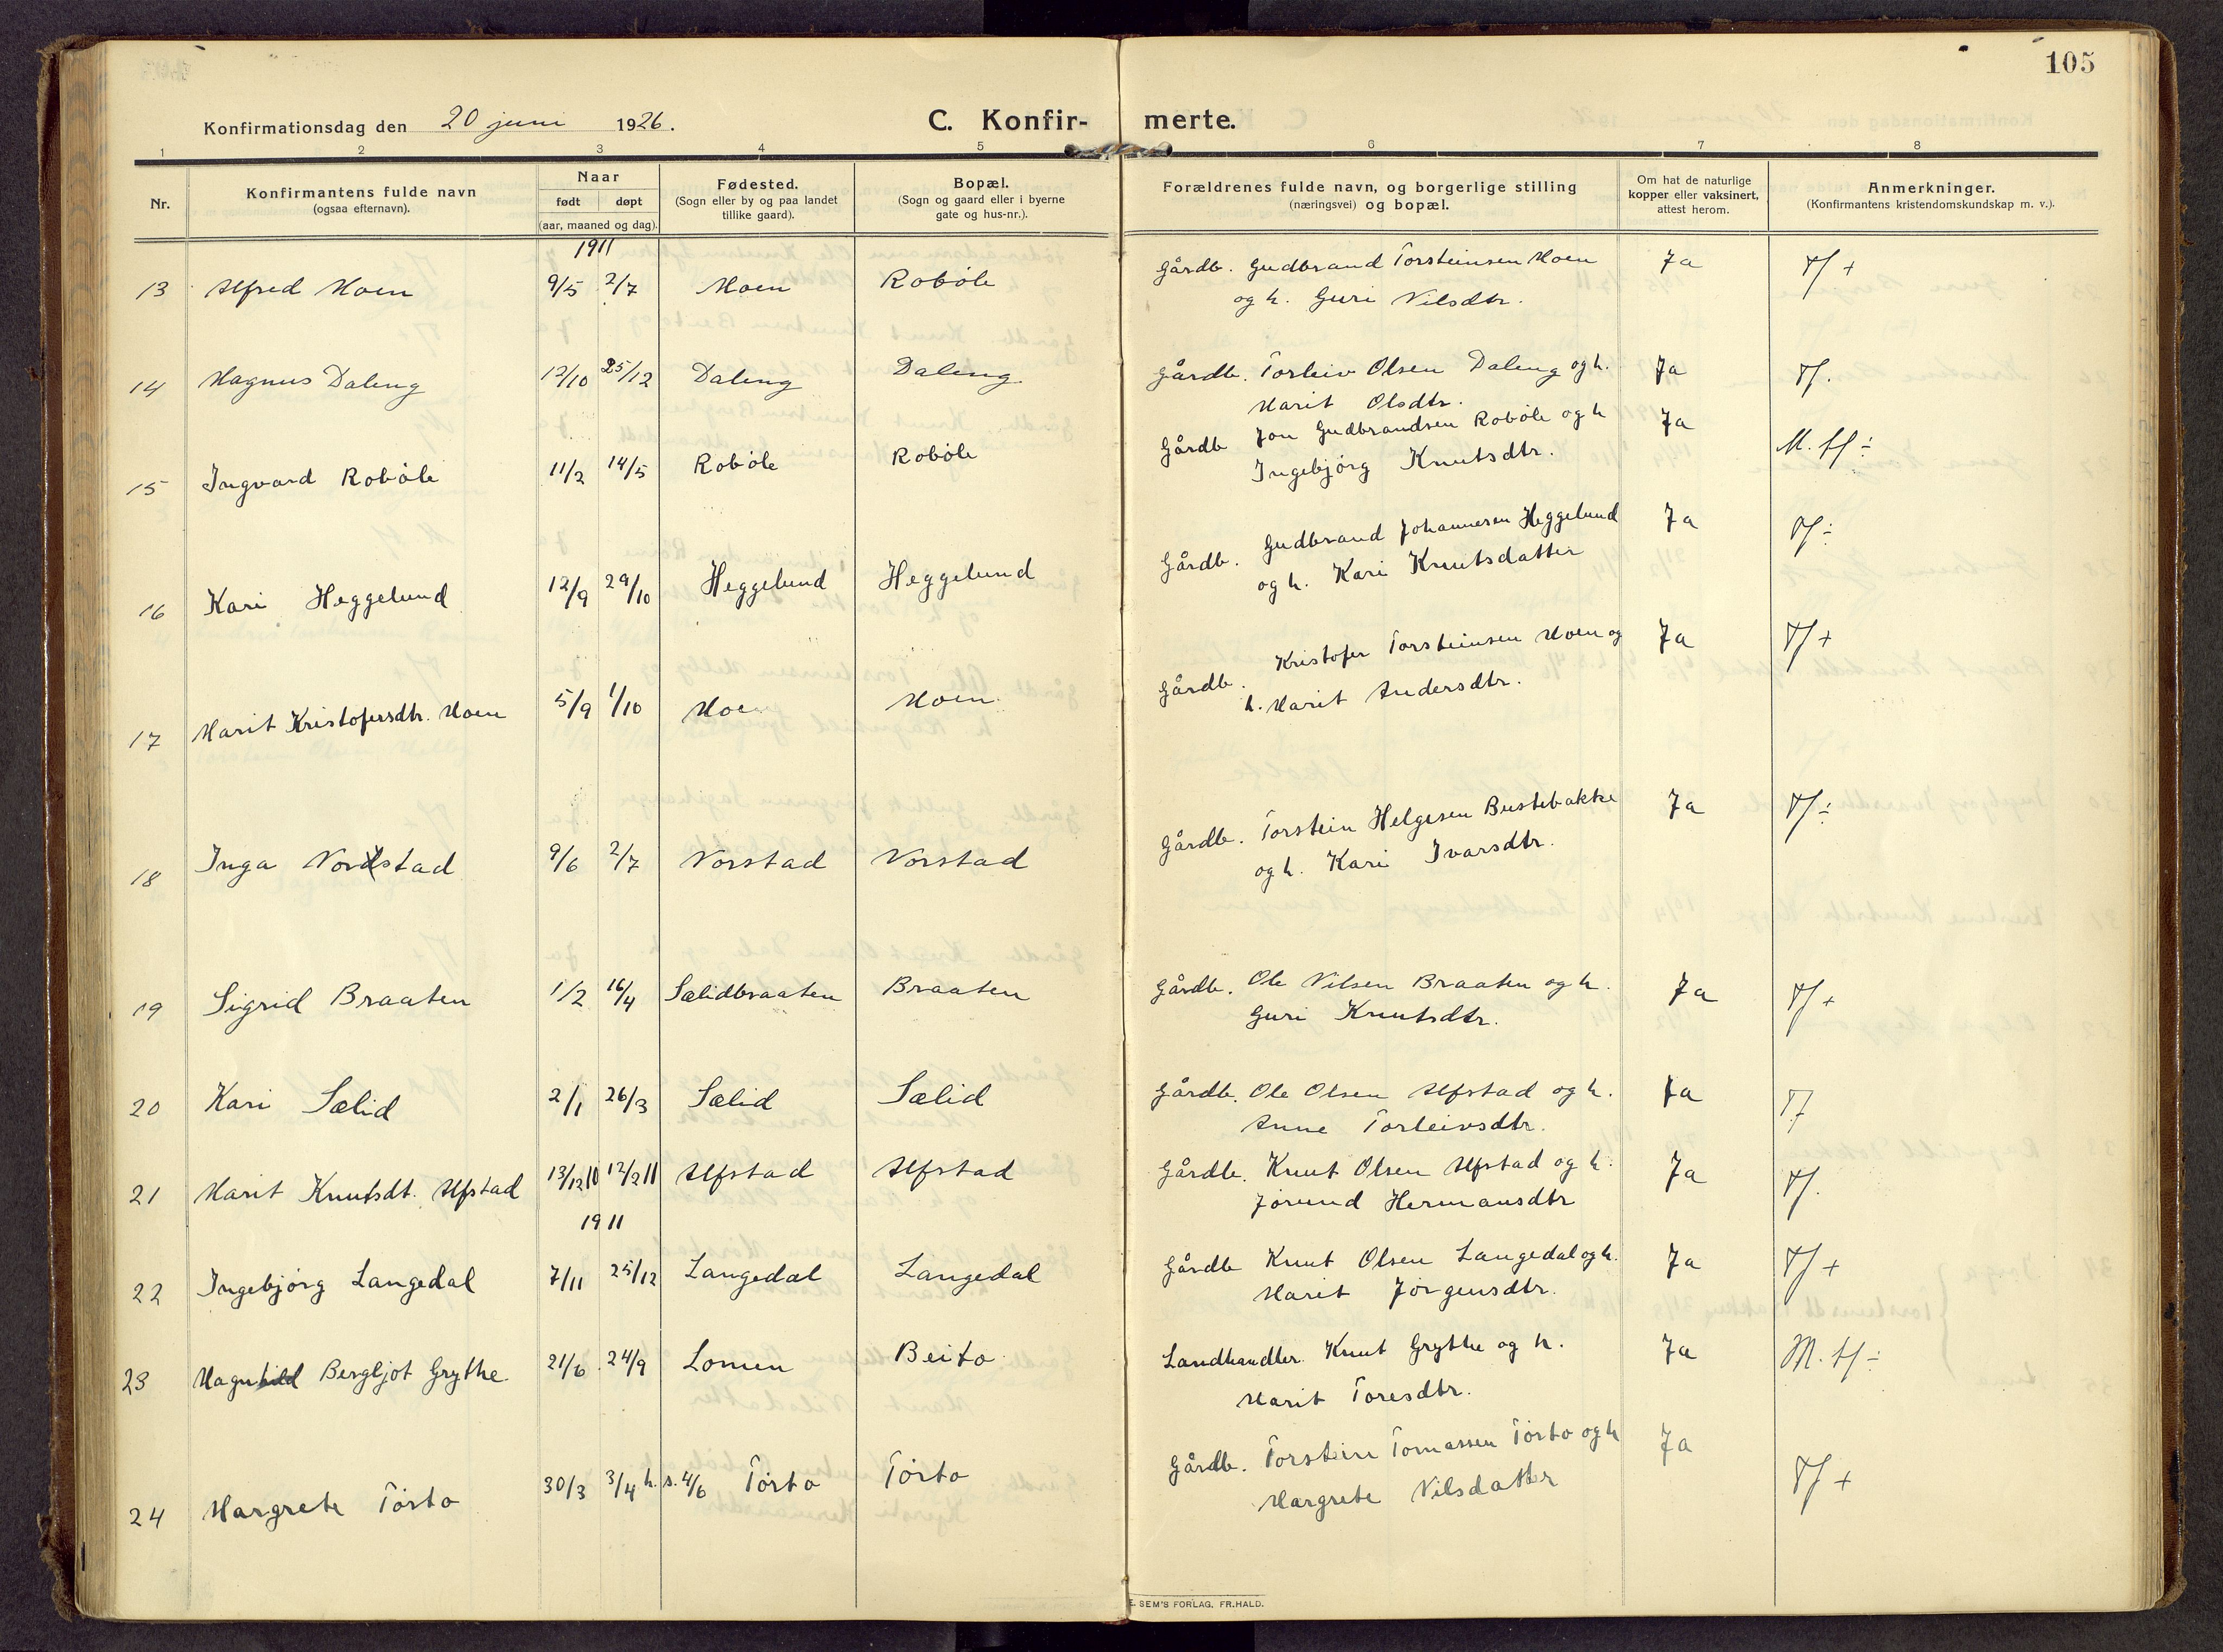 105
Konfirmationsdag den 20 juni 1926.
C. Konfir- merte.
1 2 3 4 5 6 7 8
Nr.
Konfirmantens fulde navn
(ogsaa efternavn).
Naar
født døpt
(aar, maaned og dag).
Fødested.
(Sogn eller by og paa landet
tillike gaard).
Bopæl.
(Sogn og gaard eller i byerne
gate og hus-nr.).
Forældrenes fulde navn, og borgerlige stilling
(næringsvei) og bopæl.
Om hat de naturlige
kopper eller vaksinert,
attest herom.
Anmerkninger.
(Konfirmantens kristendomskundskap m. v.).
1911
13 Alfred Moen 9/5 2/7 Moen Robøle Gårdb. Gudbrand Torsteinsen Moen Ja
og h. Guri Nilsdtr.
14 Magnus Daleng 12/10 25/12 Daleng Daleng Gårdb. Torleiv Olsen Daleng og h. Ja
Marit Olsdtr.
15 Ingvard Robøle 11/2 14/5 Robøle Robøle Gårdb Jon Gudbrandsen Robøle og h Ja
Ingebjørg Knutsdtr.
16 Kari Heggelund 12/9 29/10 Heggelund Heggelund Gårdb. Gudbrand Johannesen Heggelund Ja
og h. Kari Knutsdatter
17 Marit Kristofersdtr. Moen 5/9 1/10 Moen Moen Gårdb. Kristofer Torsteinsen Moen og Ja
h. Marit Andersdtr.
18 Inga Nordstad 9/6 2/7 Norstad Norstad Gårdb. Torstein Helgesen Bustebakke Ja
og h. Kari Ivarsdtr.
19 Sigrid Braaten 1/2 16/4 Sælidbraaten Braaten Gårdb. Ole Nilsen Braaten og h. Ja
Guri Knutsdtr.
20 Kari Sælid 2/1 26/3 Sælid Sælid Gårdb. Ole Olsen Alfstad og h. Ja
Anne Torleivsdtr.
21 Marit Knutsdt. Alfstad 13/12 10 12/2 11 Alfstad Alfstad Gårdb. Knut Olsen Alfstad og h. Ja
Jørund Hermansdtr
1911
22 Ingebjørg Langedal 7/11 25/12 Langedal Langedal Gårdb Knut Olsen Langedal og h. Ja
Marit Jørgensdtr.
23 Magnhild Bergljot Grythe 21/6 24/9 Lomen Beito Landhandler Knut Grythe og h. Ja
Marit Toresdtr.
24 Margrete Tørto 30/3 3/4 h. s. 4/6 Tørto Tørto Gårdb. Torstein Tomassen Tørto og h Ja
Margrete Nilsdatter
SEM'S FORLAG, FR. HALD.